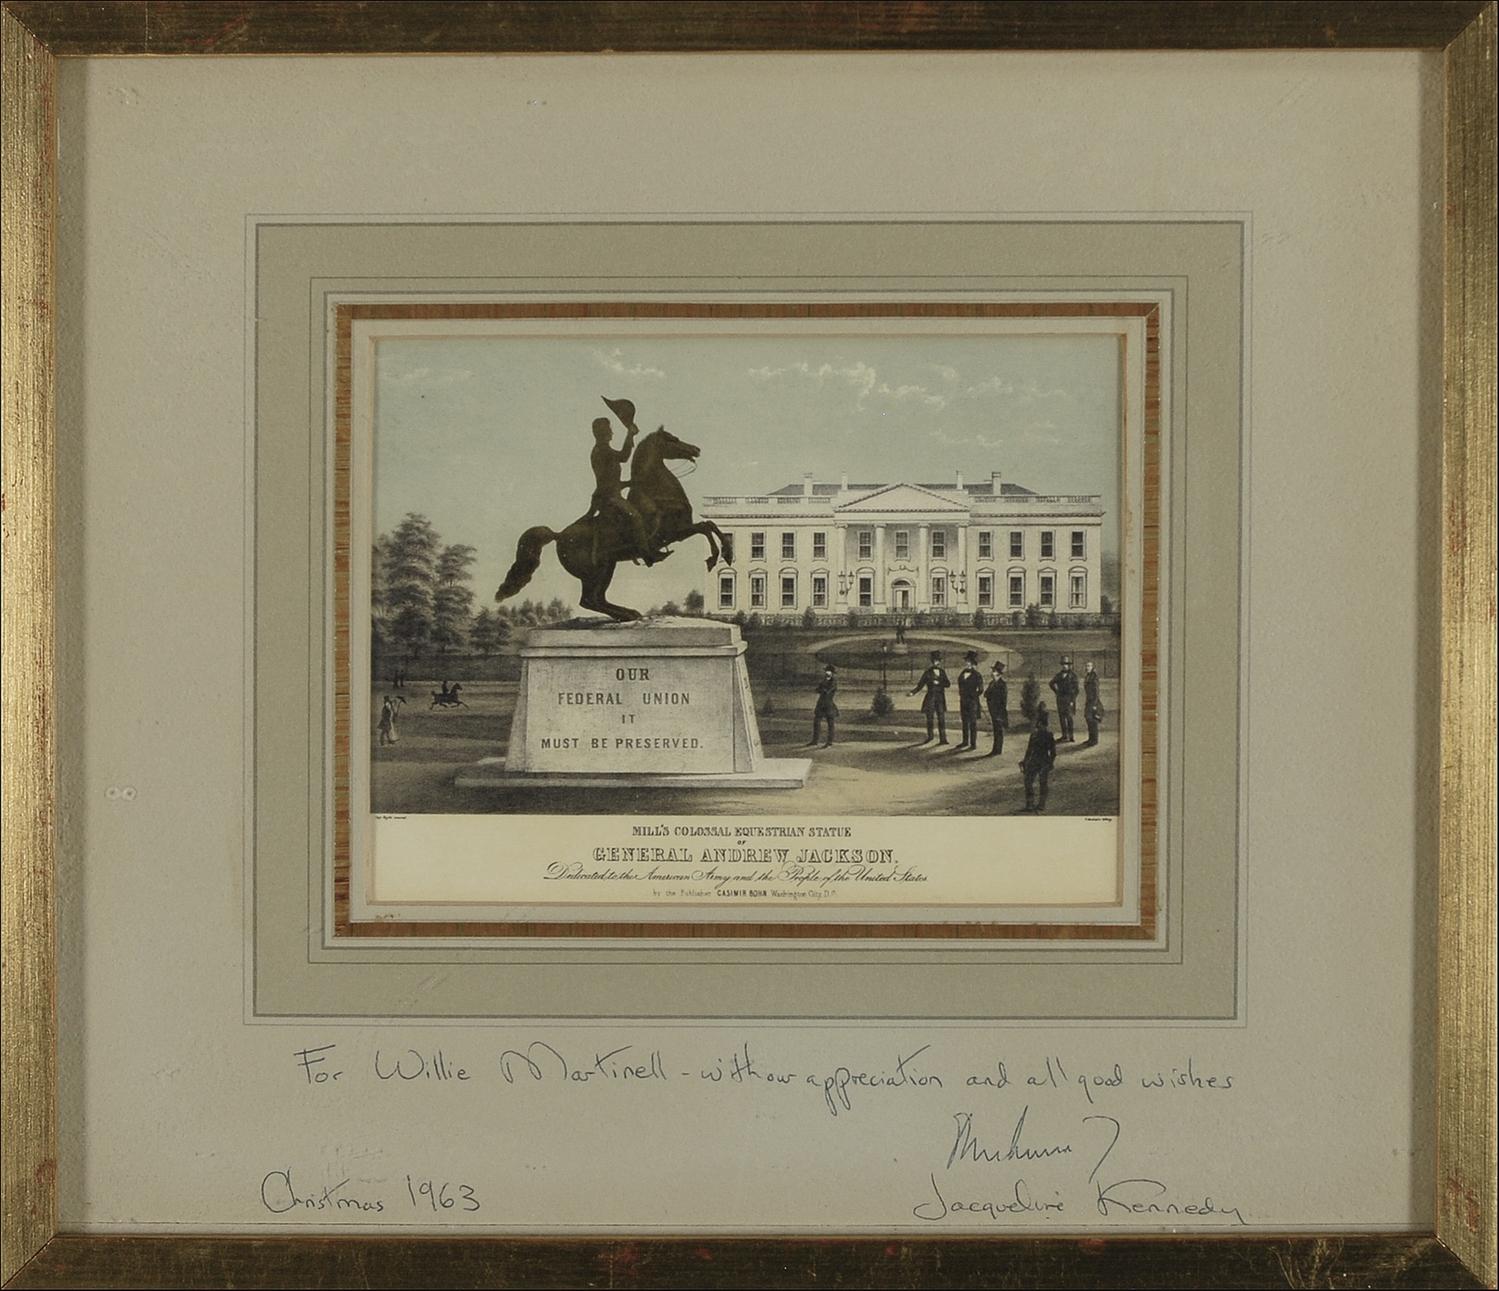 OUR
FEDERAL UNION
IT
MUST BE PRESERVED.
MILL'S COLOSSAL EQUESTRIAN STATUE
OF
GENERAL ANDREW JACKSON.
Dedicated to the American Army and the People of the United States
by the Publisher CASIMIR BOHN Washington City D.C.
For Willie Martinell - with our appreciation and all good wishes
Christmas 1963
Jacqueline Kennedy